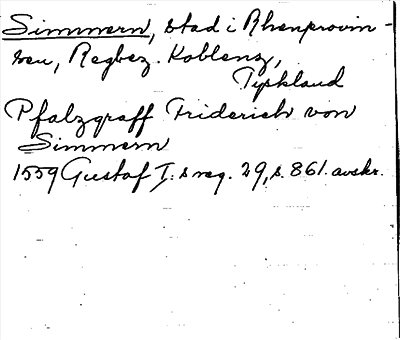 Simmern, stad i Rhenprovin-
sen, Regbez. Koblenz,
Tyskland
Pfalzgraff Friderich von
Simmern
1559 Gustaf I:s reg. 29, s. 861. avskr.